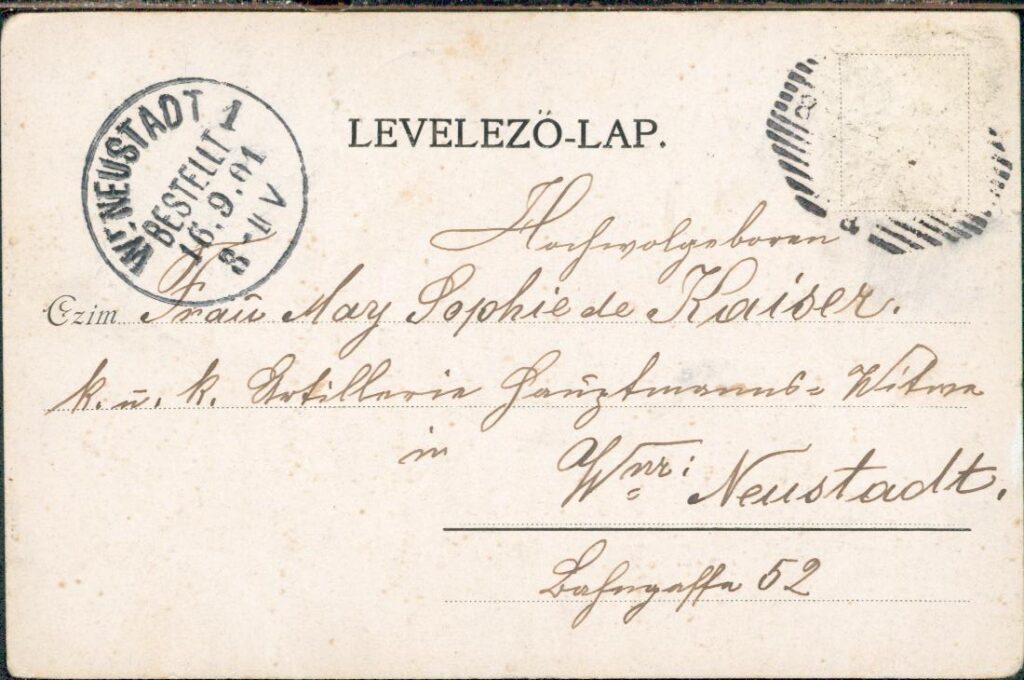 LEVELEZŐ-LAP.
WR. NEUSTADT 1
BESTELLT
16.9.01
8-11 V
Hochwolgeboren
Czim Frau May Sophie de Kaiser.
k. u. k. Artillerie Hauptmanns= Witwe
in
Wnr: Neustadt.
Bahngasse 52